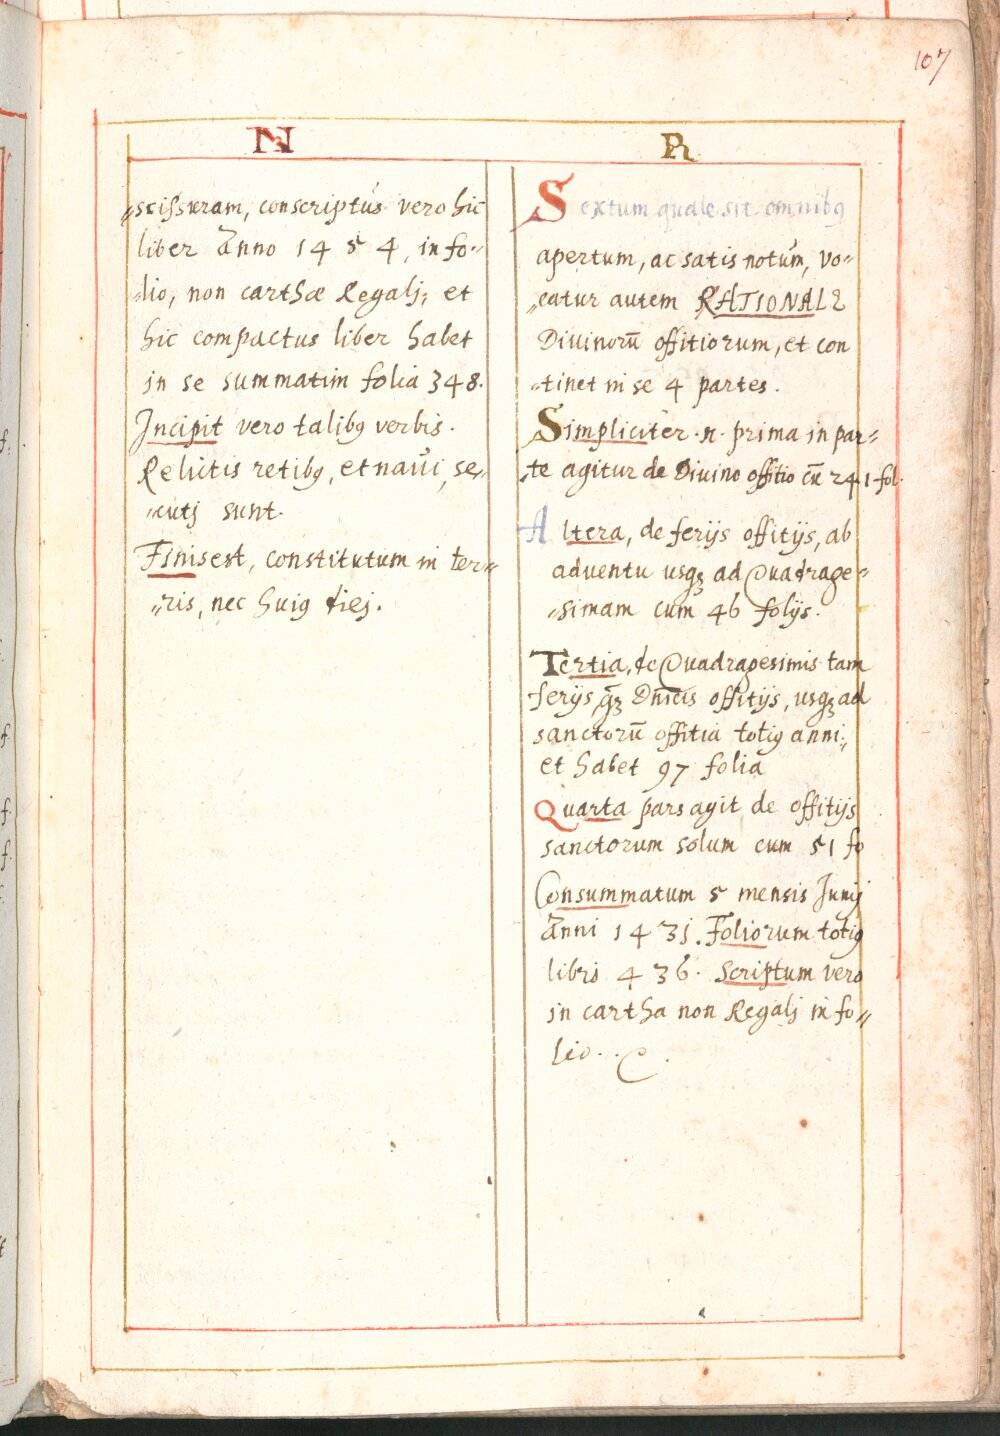 107
N
„scissuram, conscriptus vero hic
liber Anno 1454, in fo„
„lio, non carthæ Regalj; et
hic compactus liber habet
in se summatim folia 348.
Incipit vero talibꝫ verbis.
Relictis retibꝫ, et navi, se„
„cutj sunt.
Finis est, constitutum in ter„
„ris, nec huiꝫ diej.
R
Sextum quale sit omnibꝫ
apertum, ac satis notum, vo„
„catur autem RATIONALE
Diuinorū offitiorum, et con
„tinet in se 4 partes.
Simpliciter .n. prima in par„
„te agitur de Diuino offitio cū 241 fol.
Altera, de ferijs offitijs, ab
adventu usqꝫ ad Quadrage„
„simam cum 46 folijs.
Tertia, de Quadragesimis tam
ferijs, qꝫ Dn̄icis offitijs, usqꝫ ad
sanctorū offitia totiꝫ anni;
et habet 97 folia
Quarta pars agit de offitijs
sanctorum solum cum 51 fo
Consummatum 5 mensis Junij
Anni 1431. Foliorum totiꝫ
libri 436. Scriptum vero
in cartha non Regalj in fo„
lio.